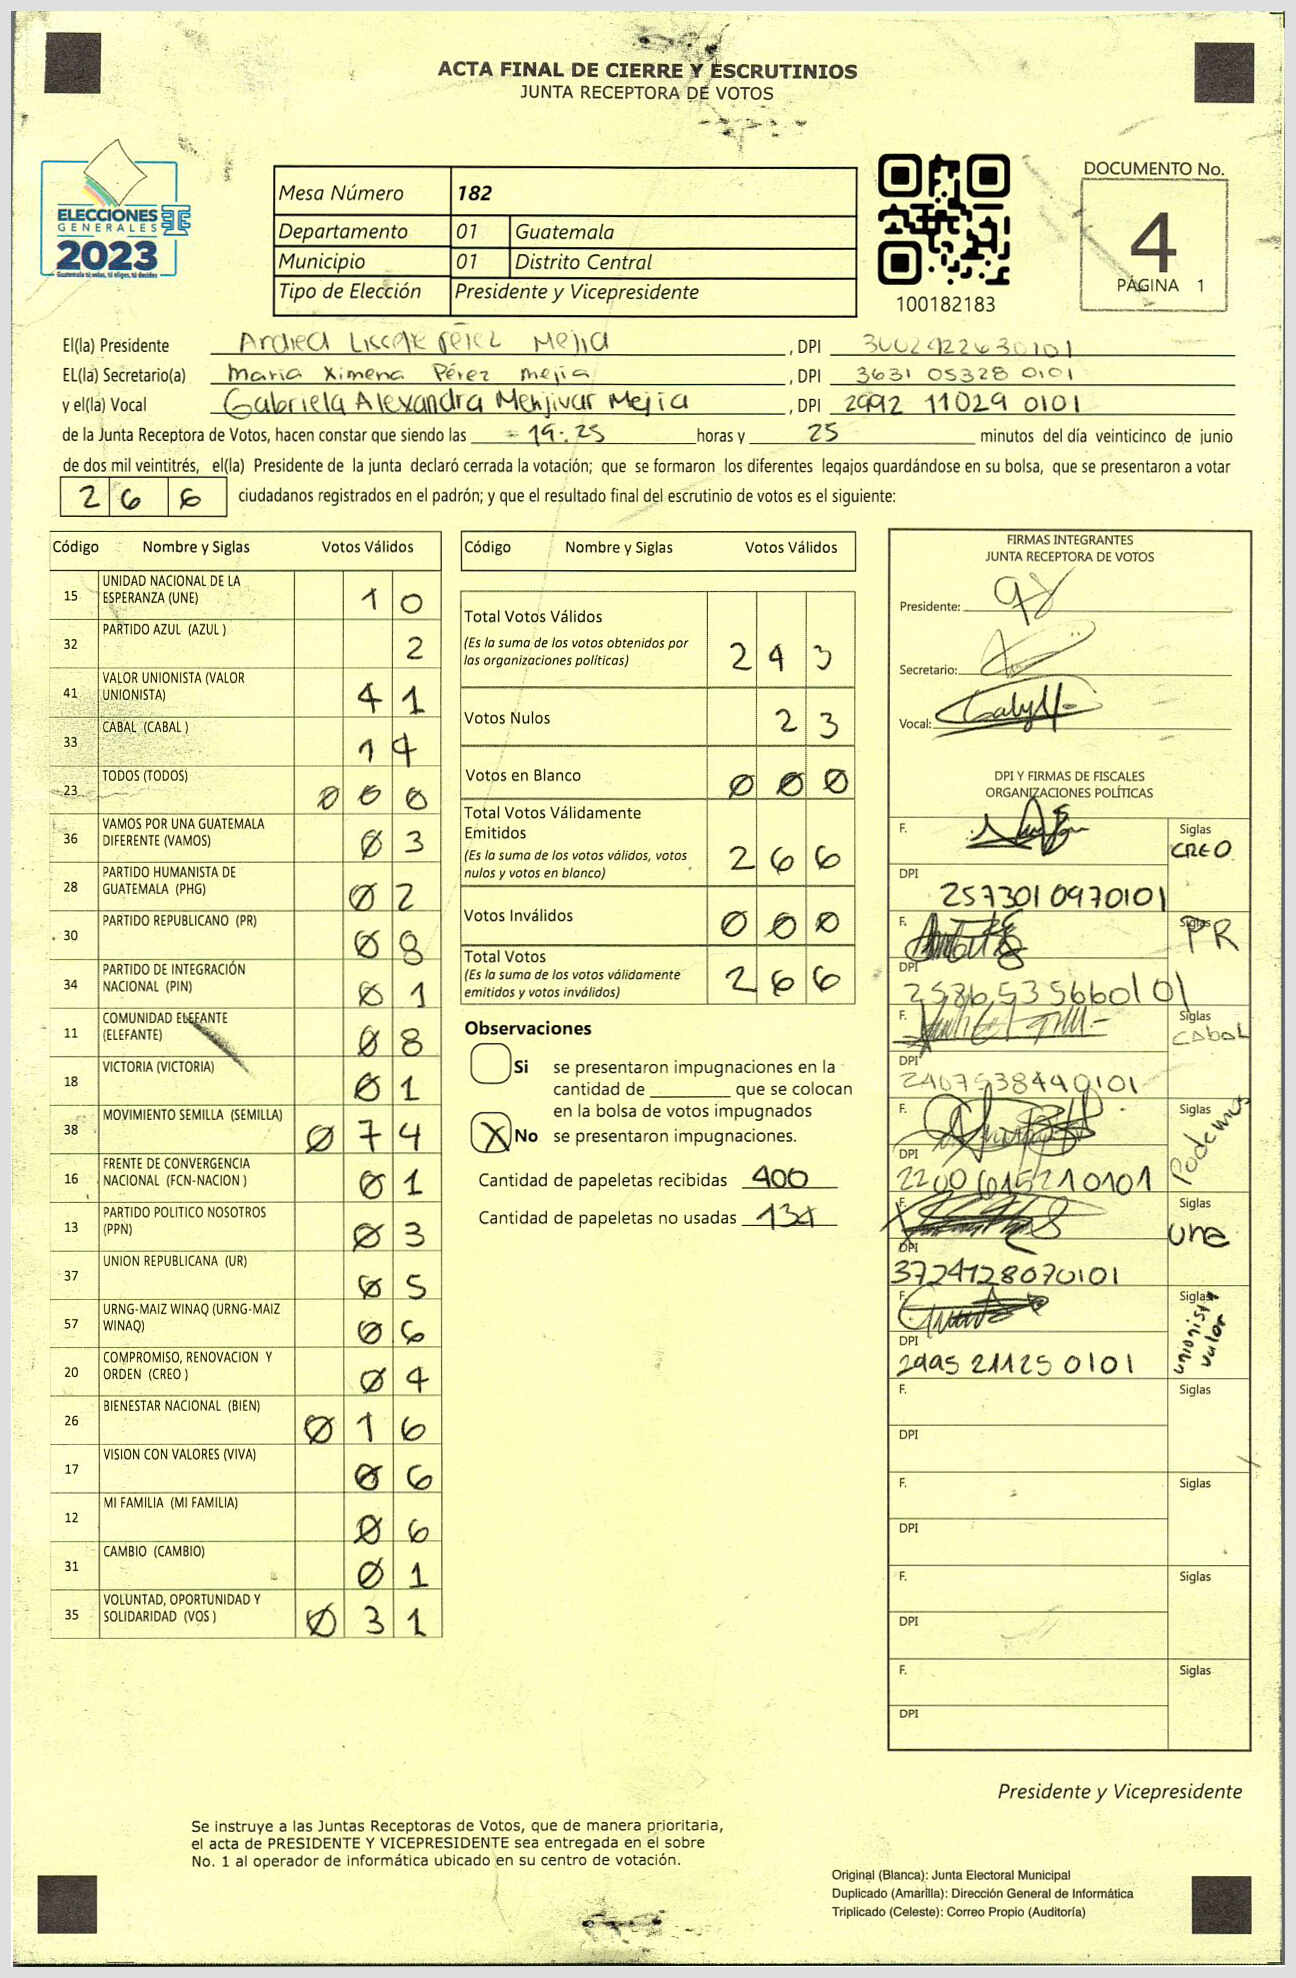 ACTA FINAL DE CIERRE Y ESCRUTINIOS
JUNTA RECEPTORA DE VOTOS
ELECCIONES
GENERALES
2023
Guatemala tú votas, tú eliges, tú decides
Mesa Número 182
Departamento 01 Guatemala
Municipio 01 Distrito Central
Tipo de Elección Presidente y Vicepresidente
100182183
DOCUMENTO No.
4
PÁGINA 1
El(la) Presidente Pérez Mejia, DPI 3002922630101
EL(la) Secretario(a) Maria Ximena Pérez Mejia, DPI 3631 05328 0101
y el(la) Vocal Gabriela Alexandra Menjivar Mejia, DPI 2992 11029 0101
de la Junta Receptora de Votos, hacen constar que siendo las 19:25 horas y 25 minutos del día veinticinco de junio
de dos mil veintitrés, el(la) Presidente de la junta declaró cerrada la votación; que se formaron los diferentes legajos guardándose en su bolsa, que se presentaron a votar
266 ciudadanos registrados en el padrón; y que el resultado final del escrutinio de votos es el siguiente:
Código Nombre y Siglas Votos Válidos
15 UNIDAD NACIONAL DE LA ESPERANZA (UNE) 10
32 PARTIDO AZUL (AZUL ) 2
41 VALOR UNIONISTA (VALOR UNIONISTA) 41
33 CABAL (CABAL ) 14
23 TODOS (TODOS) 000
36 VAMOS POR UNA GUATEMALA DIFERENTE (VAMOS) 03
28 PARTIDO HUMANISTA DE GUATEMALA (PHG) 02
30 PARTIDO REPUBLICANO (PR) 08
34 PARTIDO DE INTEGRACIÓN NACIONAL (PIN) 01
11 COMUNIDAD ELEFANTE (ELEFANTE) 08
18 VICTORIA (VICTORIA) 01
38 MOVIMIENTO SEMILLA (SEMILLA) 074
16 FRENTE DE CONVERGENCIA NACIONAL (FCN-NACION ) 01
13 PARTIDO POLITICO NOSOTROS (PPN) 03
37 UNION REPUBLICANA (UR) 05
57 URNG-MAIZ WINAQ (URNG-MAIZ WINAQ) 06
20 COMPROMISO, RENOVACION Y ORDEN (CREO ) 04
26 BIENESTAR NACIONAL (BIEN) 016
17 VISION CON VALORES (VIVA) 06
12 MI FAMILIA (MI FAMILIA) 06
31 CAMBIO (CAMBIO) 01
35 VOLUNTAD, OPORTUNIDAD Y SOLIDARIDAD (VOS ) 031
Código Nombre y Siglas Votos Válidos
Total Votos Válidos
(Es la suma de los votos obtenidos por
las organizaciones políticas) 243
Votos Nulos 23
Votos en Blanco 000
Total Votos Válidamente
Emitidos
(Es la suma de los votos válidos, votos
nulos y votos en blanco) 266
Votos Inválidos 000
Total Votos
(Es la suma de los votos válidamente
emitidos y votos inválidos) 266
Observaciones
Si se presentaron impugnaciones en la
cantidad de que se colocan
en la bolsa de votos impugnados
X No se presentaron impugnaciones.
Cantidad de papeletas recibidas 400
Cantidad de papeletas no usadas 134
FIRMAS INTEGRANTES
JUNTA RECEPTORA DE VOTOS
Presidente:
Secretario:
Vocal:
DPI Y FIRMAS DE FISCALES
ORGANIZACIONES POLÍTICAS
F. Siglas CREO
DPI 2573010970101
F. Siglas PR
DPI 2586535660101
F. Siglas Cabal
DPI 2407538440101
F. Siglas Podemos
DPI 2200615210101
F. Siglas Une
DPI 3724128070101
F. Siglas unionista valor
DPI 2995 21125 0101
F. Siglas
DPI
F. Siglas
DPI
F. Siglas
DPI
F. Siglas
DPI
Presidente y Vicepresidente
Se instruye a las Juntas Receptoras de Votos, que de manera prioritaria,
el acta de PRESIDENTE Y VICEPRESIDENTE sea entregada en el sobre
No. 1 al operador de informática ubicado en su centro de votación.
Original (Blanca): Junta Electoral Municipal
Duplicado (Amarilla): Dirección General de Informática
Triplicado (Celeste): Correo Propio (Auditoría)